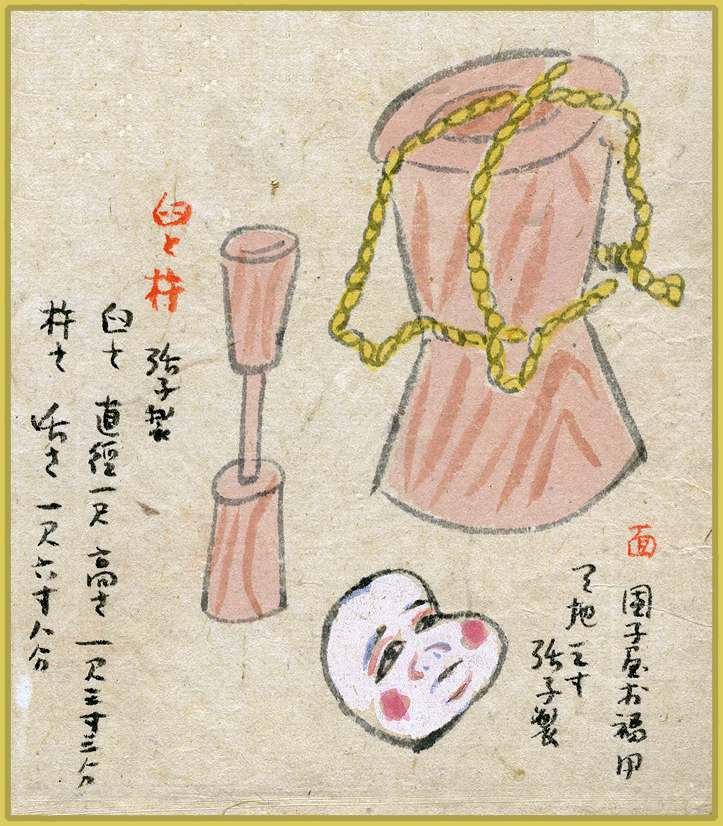 面
団子屋お福用
天地三寸
張子製
臼と杵
張子製
臼は 直徑一尺 高さ 一尺三寸三分
杵は 長さ 一尺六寸八分